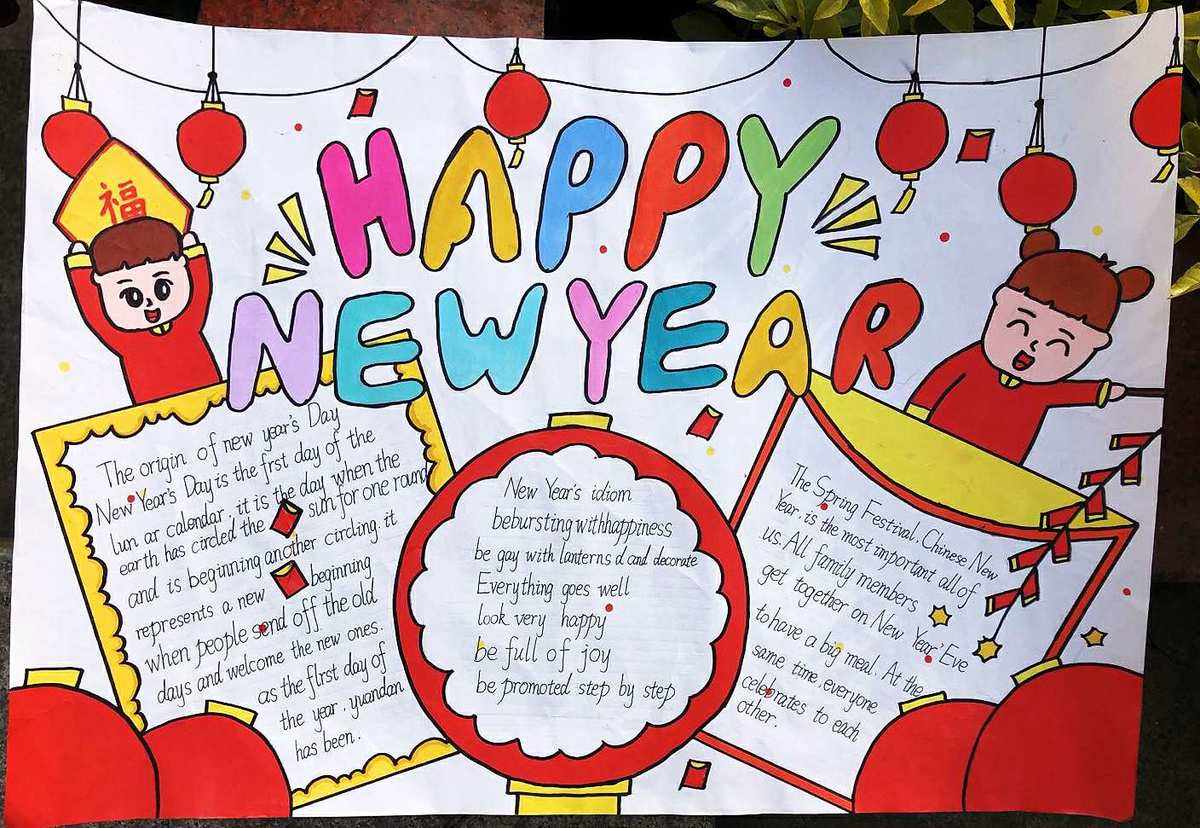 福
HAPPY
NEW YEAR
The origin of new year's Day
New Year's Day is the first day of the
lun ar calendar, it is the day when the
earth has circled the sun for one round
and is beginning another circling. it
represents a new beginning
when people send off the old
days and welcome the new ones.
as the first day of
the year . yuandan
has been .
New Year's idiom
bebursting withhappiness
be gay with lanterns d and decorate
Everything goes well
look very happy
be full of joy
be promoted step by step
The Spring Festival. Chinese New
Year. is the most important all of
us. All family members
get together on New Year' Eve
to have a big meal. At the
same time. everyone
celebrates to each
other.